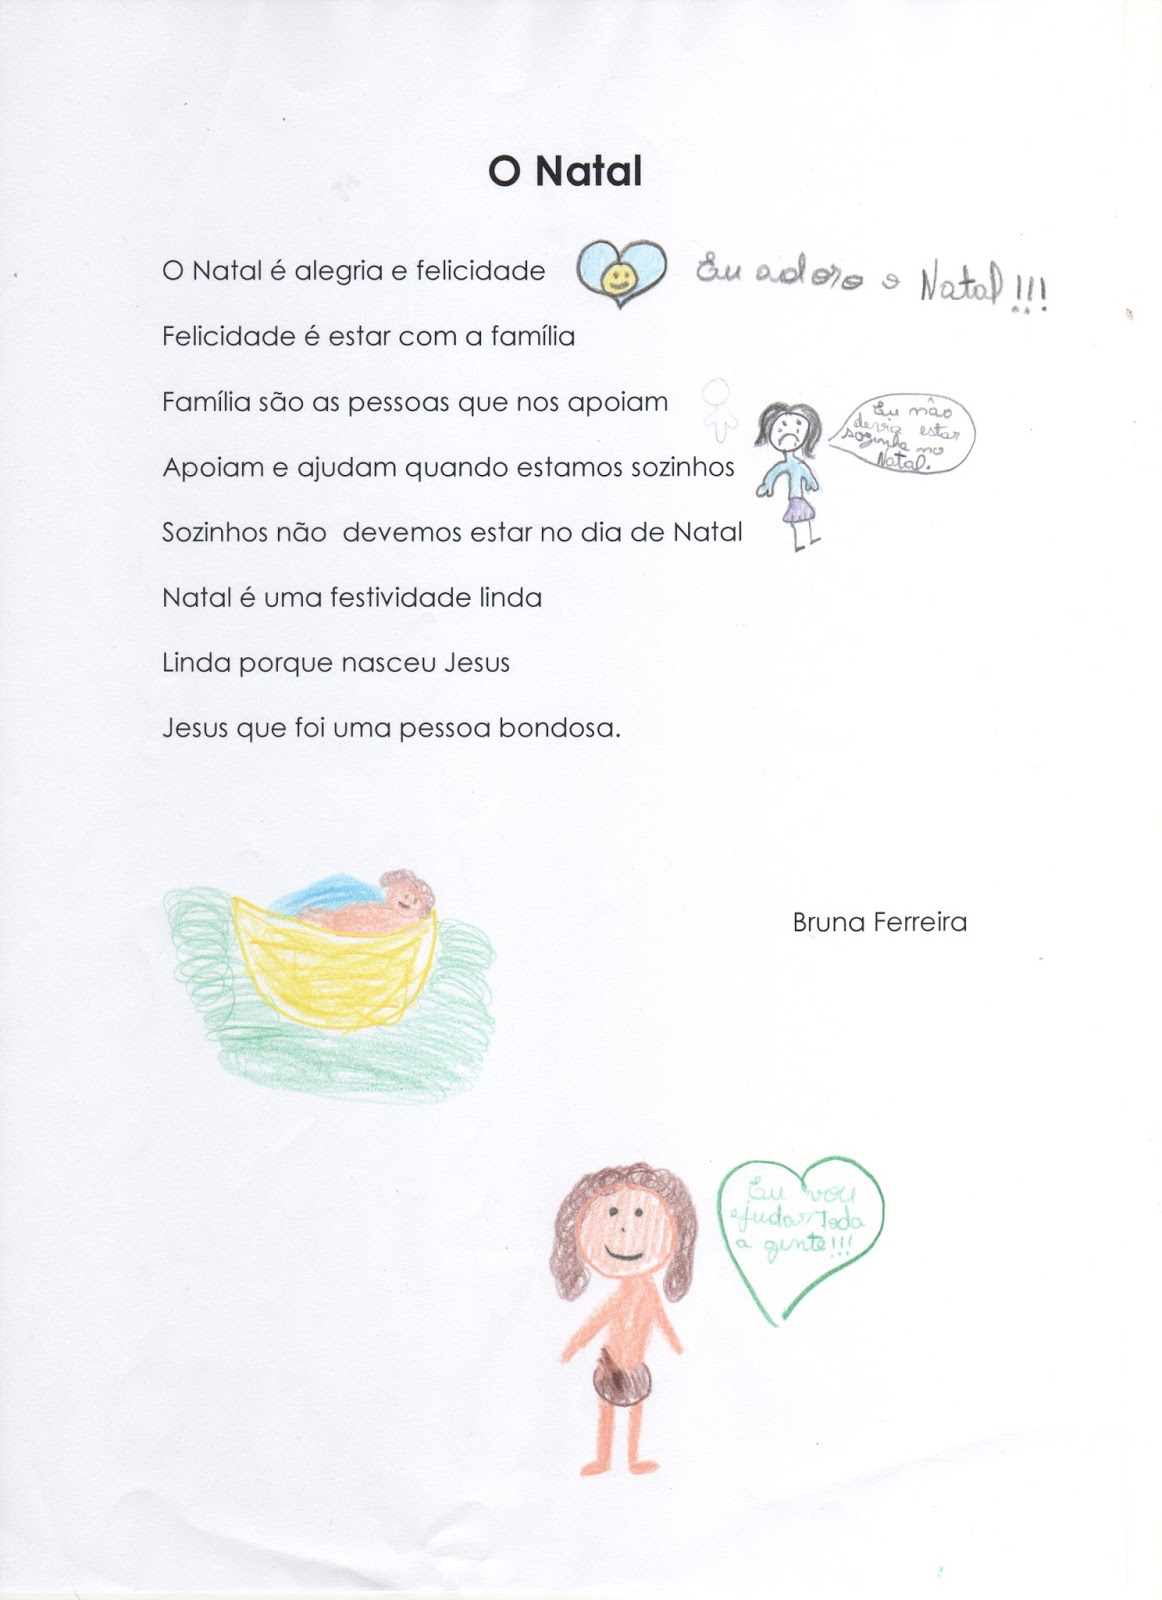 O Natal
O Natal é alegria e felicidade
Eu adoro o Natal!!!
Felicidade é estar com a família
Família são as pessoas que nos apoiam
Eu não
devia estar
sozinha no
Natal.
Apoiam e ajudam quando estamos sozinhos
Sozinhos não devemos estar no dia de Natal
Natal é uma festividade linda
Linda porque nasceu Jesus
Jesus que foi uma pessoa bondosa.
Bruna Ferreira
Eu vou
ajudar toda
a gente!!!